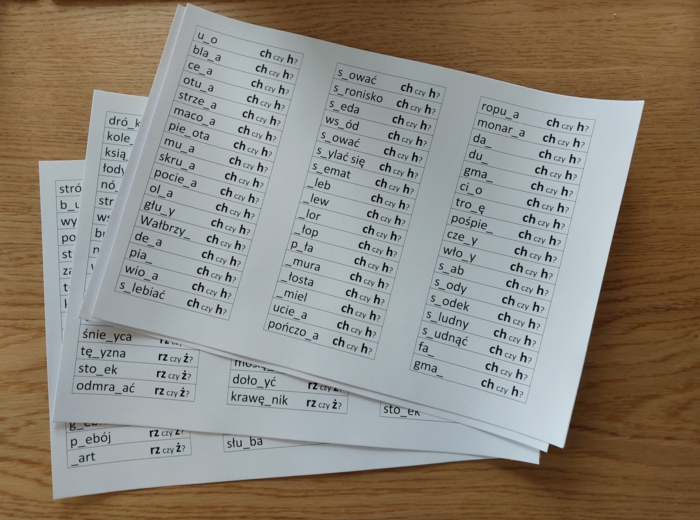 u_o ch czy h?
bla_a ch czy h?
ce_a ch czy h?
otu_a ch czy h?
strze_a ch czy h?
maco_a ch czy h?
pie_ota ch czy h?
mu_a ch czy h?
skru_a ch czy h?
pocie_a ch czy h?
ol_a ch czy h?
głu_y ch czy h?
Wałbrzy_ ch czy h?
de_a ch czy h?
pia_ ch czy h?
wio_a ch czy h?
s_lebiać ch czy h?
s_ować ch czy h?
s_ronisko ch czy h?
s_eda ch czy h?
ws_ód ch czy h?
s_ować ch czy h?
s_ylać się ch czy h?
s_emat ch czy h?
_leb ch czy h?
_lew ch czy h?
_lor ch czy h?
_łop ch czy h?
p_ła ch czy h?
_mura ch czy h?
_łosta ch czy h?
_miel ch czy h?
ucie_a ch czy h?
pończo_a ch czy h?
ropu_a ch czy h?
monar_a ch czy h?
da_ ch czy h?
du_ ch czy h?
gma_ ch czy h?
ci_o ch czy h?
tro_ę ch czy h?
pośpie_ ch czy h?
cze_y ch czy h?
wło_y ch czy h?
s_ab ch czy h?
s_ody ch czy h?
s_odek ch czy h?
s_ludny ch czy h?
s_udnąć ch czy h?
fa_ ch czy h?
gma_ ch czy h?
śnie_yca rz czy ż?
tę_yzna rz czy ż?
sto_ek rz czy ż?
odmra_ać rz czy ż?
doło_yć rz czy ż?
krawę_nik rz czy ż?
sto_ek
p_ebój rz czy ż?
_art rz czy ż?
słu_ba